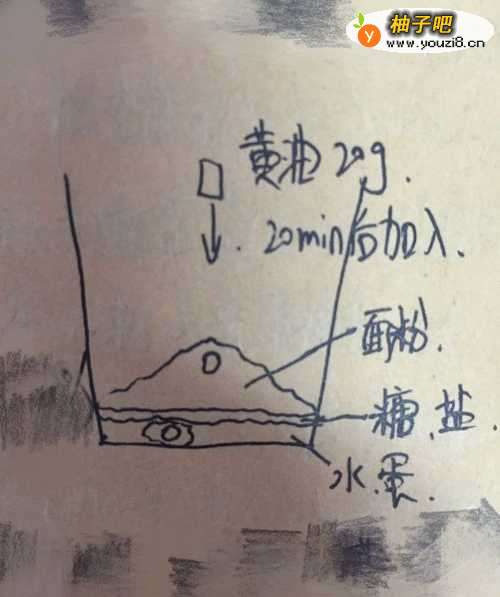 柚子吧
www.youzi8.cn
黄油 20g.
20min后加入.
面粉.
糖、盐.
水.蛋.